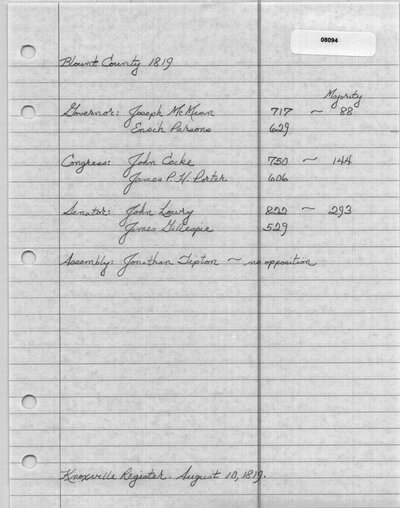 08094
Blount County 1819
Majority
Governor: Joseph McMinn 717 ~ 88
Enoch Parsons 629
Congress: John Cocke 750 ~ 144
James P. H. Porter 606
Senator: John Lowry 822 ~ 293
James Gillespie 529
Assembly: Jonathan Tipton ~ no opposition
Knoxville Register. August 10, 1819.